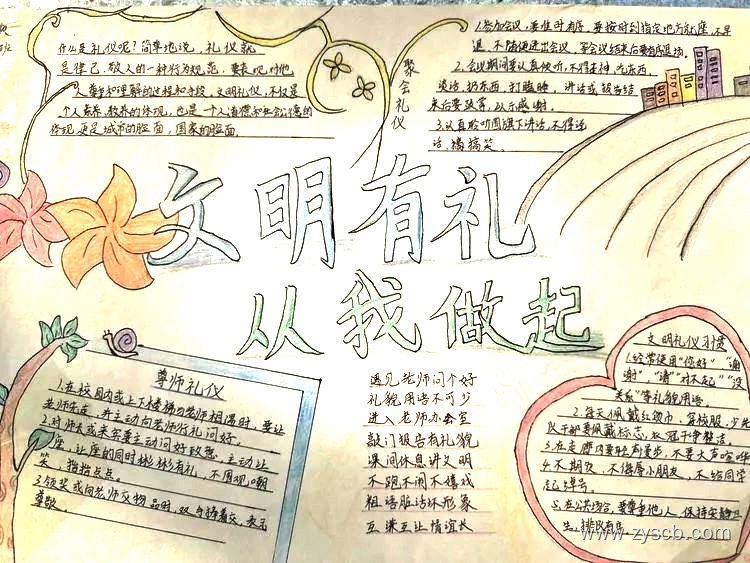 什么是礼仪呢?简单地说,礼仪就
是律己、敬人的一种行为规范,要表现对他
人尊重和理解的过程和手段。文明礼仪,不仅是
个人素养、教养的体现,也是一个人道德和社会公德的
体现。更是城市的脸面,国家的脸面。
聚会礼仪
1.参加会议,要准时有序,要按时到指定地方就座,不早
退,不随便进出会议,等会议结束后要有序退场。
2.会议期间要认真倾听,不得走神、吃东西、
谈话、扔东西、打瞌睡,讲话或
来后要鼓掌,以示感谢。
3.认真聆听国旗下讲话,不得说
话、搞搞笑。
文明有礼
从我做起
尊师礼仪
1.在校内或上下楼梯与老师相遇时,要让
老师先走,并主动向老师行礼问好。
2.对师长或来宾要主动问好致意,主动让
座,让座的同时彬彬有礼,不围观嘲
笑,指指点点。
3.领奖或向老师交物品时,双手捧着交,表示
尊敬。
遇见老师问个好
礼貌用语不可少
进入老师办公室
敲门报告有礼貌
课间休息讲文明
不跑不闹不嬉戏
粗语脏话坏形象
互谦互让情谊长
文明礼仪习惯
1.经常使用“你好”“谢
谢”“请”“对不起”“没
关系”等礼貌用语。
2.每天佩戴红领巾,穿校服,少先
队干部要佩戴标志,衣冠干净整洁。
3.在走廊内要轻声漫步,不要大声喧哗
4.不期友,不侮辱小朋友,不给同学
起绰号。
5.在公共场合,要尊重他人,保持安静卫
生,排队有序。
www.zyscb.com